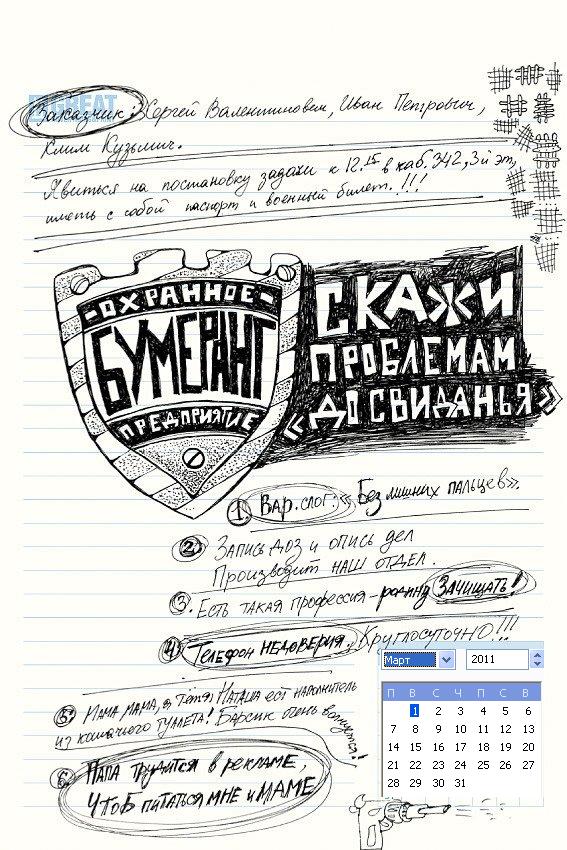 GREAT
Заказчик: Сергей Валентинович, Иван Петрович,
Клим Кузьмич.
Явиться на постановку задачи к 12.15 в каб. 342, 3й эт,
иметь с собой паспорт и военный билет.!!!
-ОХРАННОЕ-
БУМЕРАНГ
ПРЕДПРИЯТИЕ
СКАЖИ
ПРОБЛЕМАМ
«ДО СВИДАНЬЯ»
1. Вар. слог: «Без лишних пальцев».
2. Запись доз и опись дел
Производит наш отдел.
3. Есть такая профессия - родину Зачищать!
4. Телефон недоверия. Круглосуточно!!!
5. Мама мама, а тётя Наташа ест наполнитель
из кошачего туалета! Барсик очень волнуется!
6. Папа трудится в рекламе,
Чтоб питаться мне и маме
Март 2011
П В С Ч П С В
1 2 3 4 5 6
7 8 9 10 11 12 13
14 15 16 17 18 19 20
21 22 23 24 25 26 27
28 29 30 31